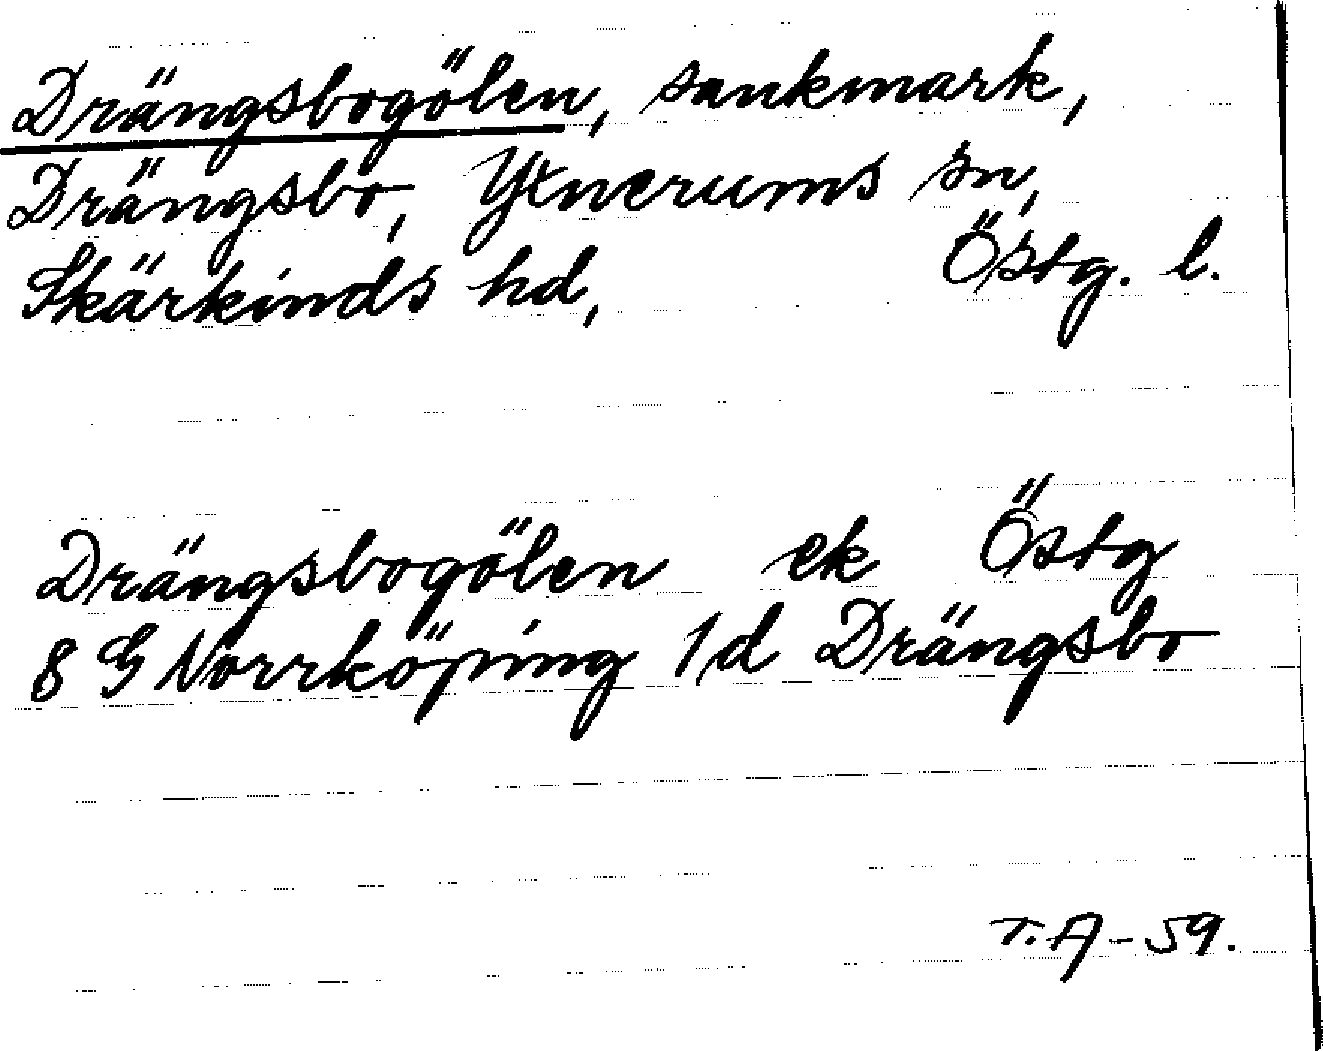 Drängsbogölen, sankmark,
Drängsbo, Yxnerums sn,
Skärkinds hd, Östg. l.
Drängsbogölen ek Östg
8 G Norrköping 1d Drängsbo
T.A-59.